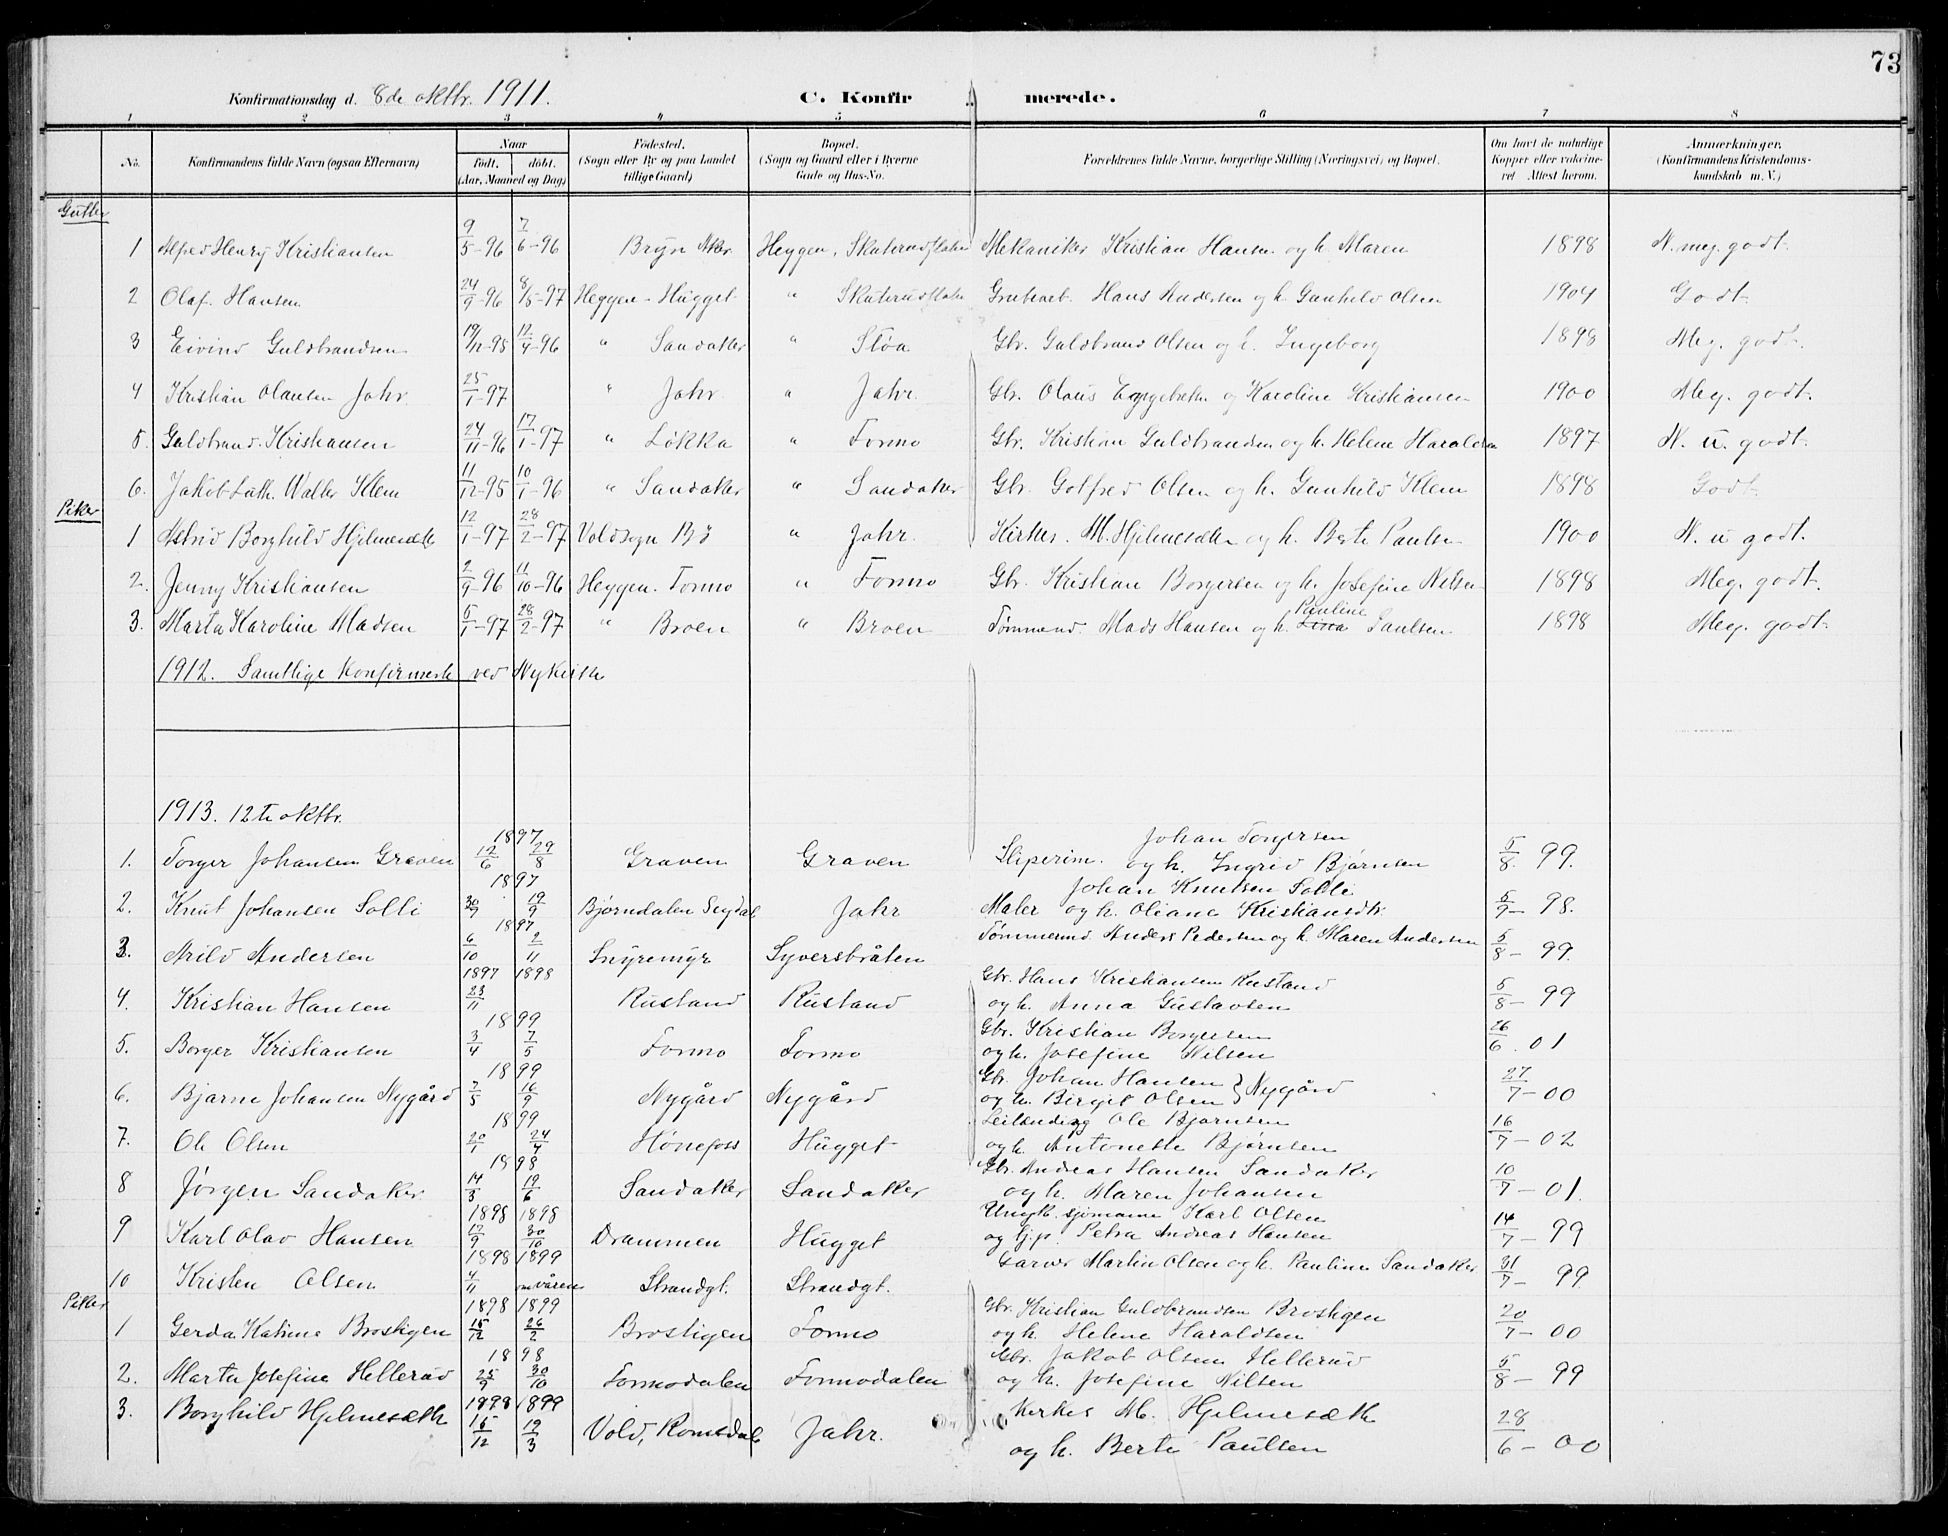 73
Konfirmationsdag d. 8de oktbr. 1911. C. Konfirmerede.
1 2 3 4 5 6 7 8
No. Konfirmandens fulde Navn (ogsaa Efternavn) Naar født. døbt. (Aar, Maaned og Dag) Fødested. (Sogn eller By og paa Landet tillige Gaard) Bopæl. (Sogn og Gaard eller i Byerne Gade og Hus-No. Forældrenes fulde Navne, borgerlige Stilling (Næringsvei) og Bopæl. Om havt de naturlige Kopper eller vakcineret Attest herom. Anmærkninger. (Konfirmandens Kristendomskundskab m. V.)
Gutter
1 Alfred Henry Kristiansen 9/5-96 7/6-96 Bryn Aker Heggen, Skuterudflaten Mekaniker Kristian Hansen og h. Maren 1898 N. meg. godt.
2 Olaf Hansen 24/9-96 8/5-97 Heggen - Hugget " Skuterudflaten Grubearb. Hans Andersen og h. Gunhild Olsen 1904 Godt.
3 Eivind Guldbrandsen 19/12-95 12/4-96 " Sandaker " Støa Gbr. Guldbrand Olsen og h. Ingeborg 1898 Meg. godt.
4 Kristian Olausen Jahr 25/1-97 " Jahr. " Jahr. Gbr. Olaus Engebretsen og Karoline Kristiansen 1900 Meg. godt.
5. Guldbrand Kristiansen 24/11-96 17/1-97 " Løkka " Formo Gbr. Kristian Guldbrandsen og h. Helene Haraldsen 1897 N. u. godt.
6. Jakob Luth. Walter Klem 11/12-95 10/1-96 " Sandaker " Sandaker Gbr. Gotfred Olsen og h. Gunhild Klem 1898 Godt.
Piker
1 Astrid Borghild Hjelmesæth 12/1-97 28/2-97 Voldsogn By " Jahr. Kirkes. M. Hjelmesæter og h. Berte Paulsen 1900 N. u godt.
2. Jenny Kristiansen 2/9-96 11/10-96 Heggen. Formo " Formo Gbr. Kristian Borgersen og h. Josefine Nilsen 1898 Meg. godt.
3. Marta Karoline Madsen 5/1-97 28/2-97 " Broen " Broen Tømmermd. Mads Hansen og h. Lina Pauline Paulsen 1898 Meg. godt.
1912. Samtlige konfirmerte ved Nykirke
1913. 12te oktbr.
1. Torger Johansen Graven 1897 12/6 29/8 Graven Graven Sliperim. Johan Torgersen og h. Ingrid Bjørnsen 5/8. 99.
2. Knut Johansen Solli 1897 30/9 19/9 Bjørndalen Sigdal Jahr Maler Johan Knutsen Solli og h. Oliane Kristiansdtr. 5/9 - 98.
3. Arild Andersen 1897 6/10 2/11 Snyremyr Syversbråten Tømmermd. Anders Pedersen og h. Maren Andersen 5/8 - 99.
4. Kristian Hansen 1897 1898 23/11 Rustand Rustand Gbr. Hans Kristiansen Rustand og h. Anna Gustavsen 5/8 - 99
5. Borger Kristiansen 1899 3/4 7/5 Formo Formo Gbr. Kristian Borgersen og h. Josefine Nilsen 26/6. 01
6. Bjarne Johansen Nygård 1899 7/5 16/9 Nygård Nygård Gbr. Johan Hansen og h. Birgit Olsen } Nygård 27/7 - 00
7. Ole Olsen 1899 20/1 24/4 Hønefoss Hugget Leilænding Ole Bjørnsen og h. Antonette Bjørnsen 16/7 - 02
8 Jørgen Sandaker 1898 14/3 19/6 Sandaker Sandaker Gbr. Andreas Hansen Sandaker og h. Maren Johansen 10/7 - 01.
9 Karl Olav Hansen 1898 1898 17/9 30/10 Drammen Hugget Ungk. sjømann Karl Olsen og Pjp. Petra Andrea Hansen 14/7 - 99
10 Kristen Olsen 1898 1899 4/11 om våren Strandgt. Strandgt. Garver Martin Olsen og h. Pauline Sandaker 31/7 - 99
Piker
1 Gerda Katrine Brostigen 1898 1899 15/12 26/2 Brostigen Formo Gbr. Kristian Guldbrandsen Brostigen og h. Helene Haraldsen 20/7 - 00
2. Marta Josefine Hellerud 1898 25/9 30/10 Formodalen Formodalen Gbr. Jakob Olsen Hellerud og h. Josefine Nilsen 5/8 - 99
3. Borghild Hjelmesæth 1898 1899 15/12 19/3 Vold, Romsdal Jahr. Kirkes M. Hjelmesæth og h. Berte Paulsen 28/6 - 00